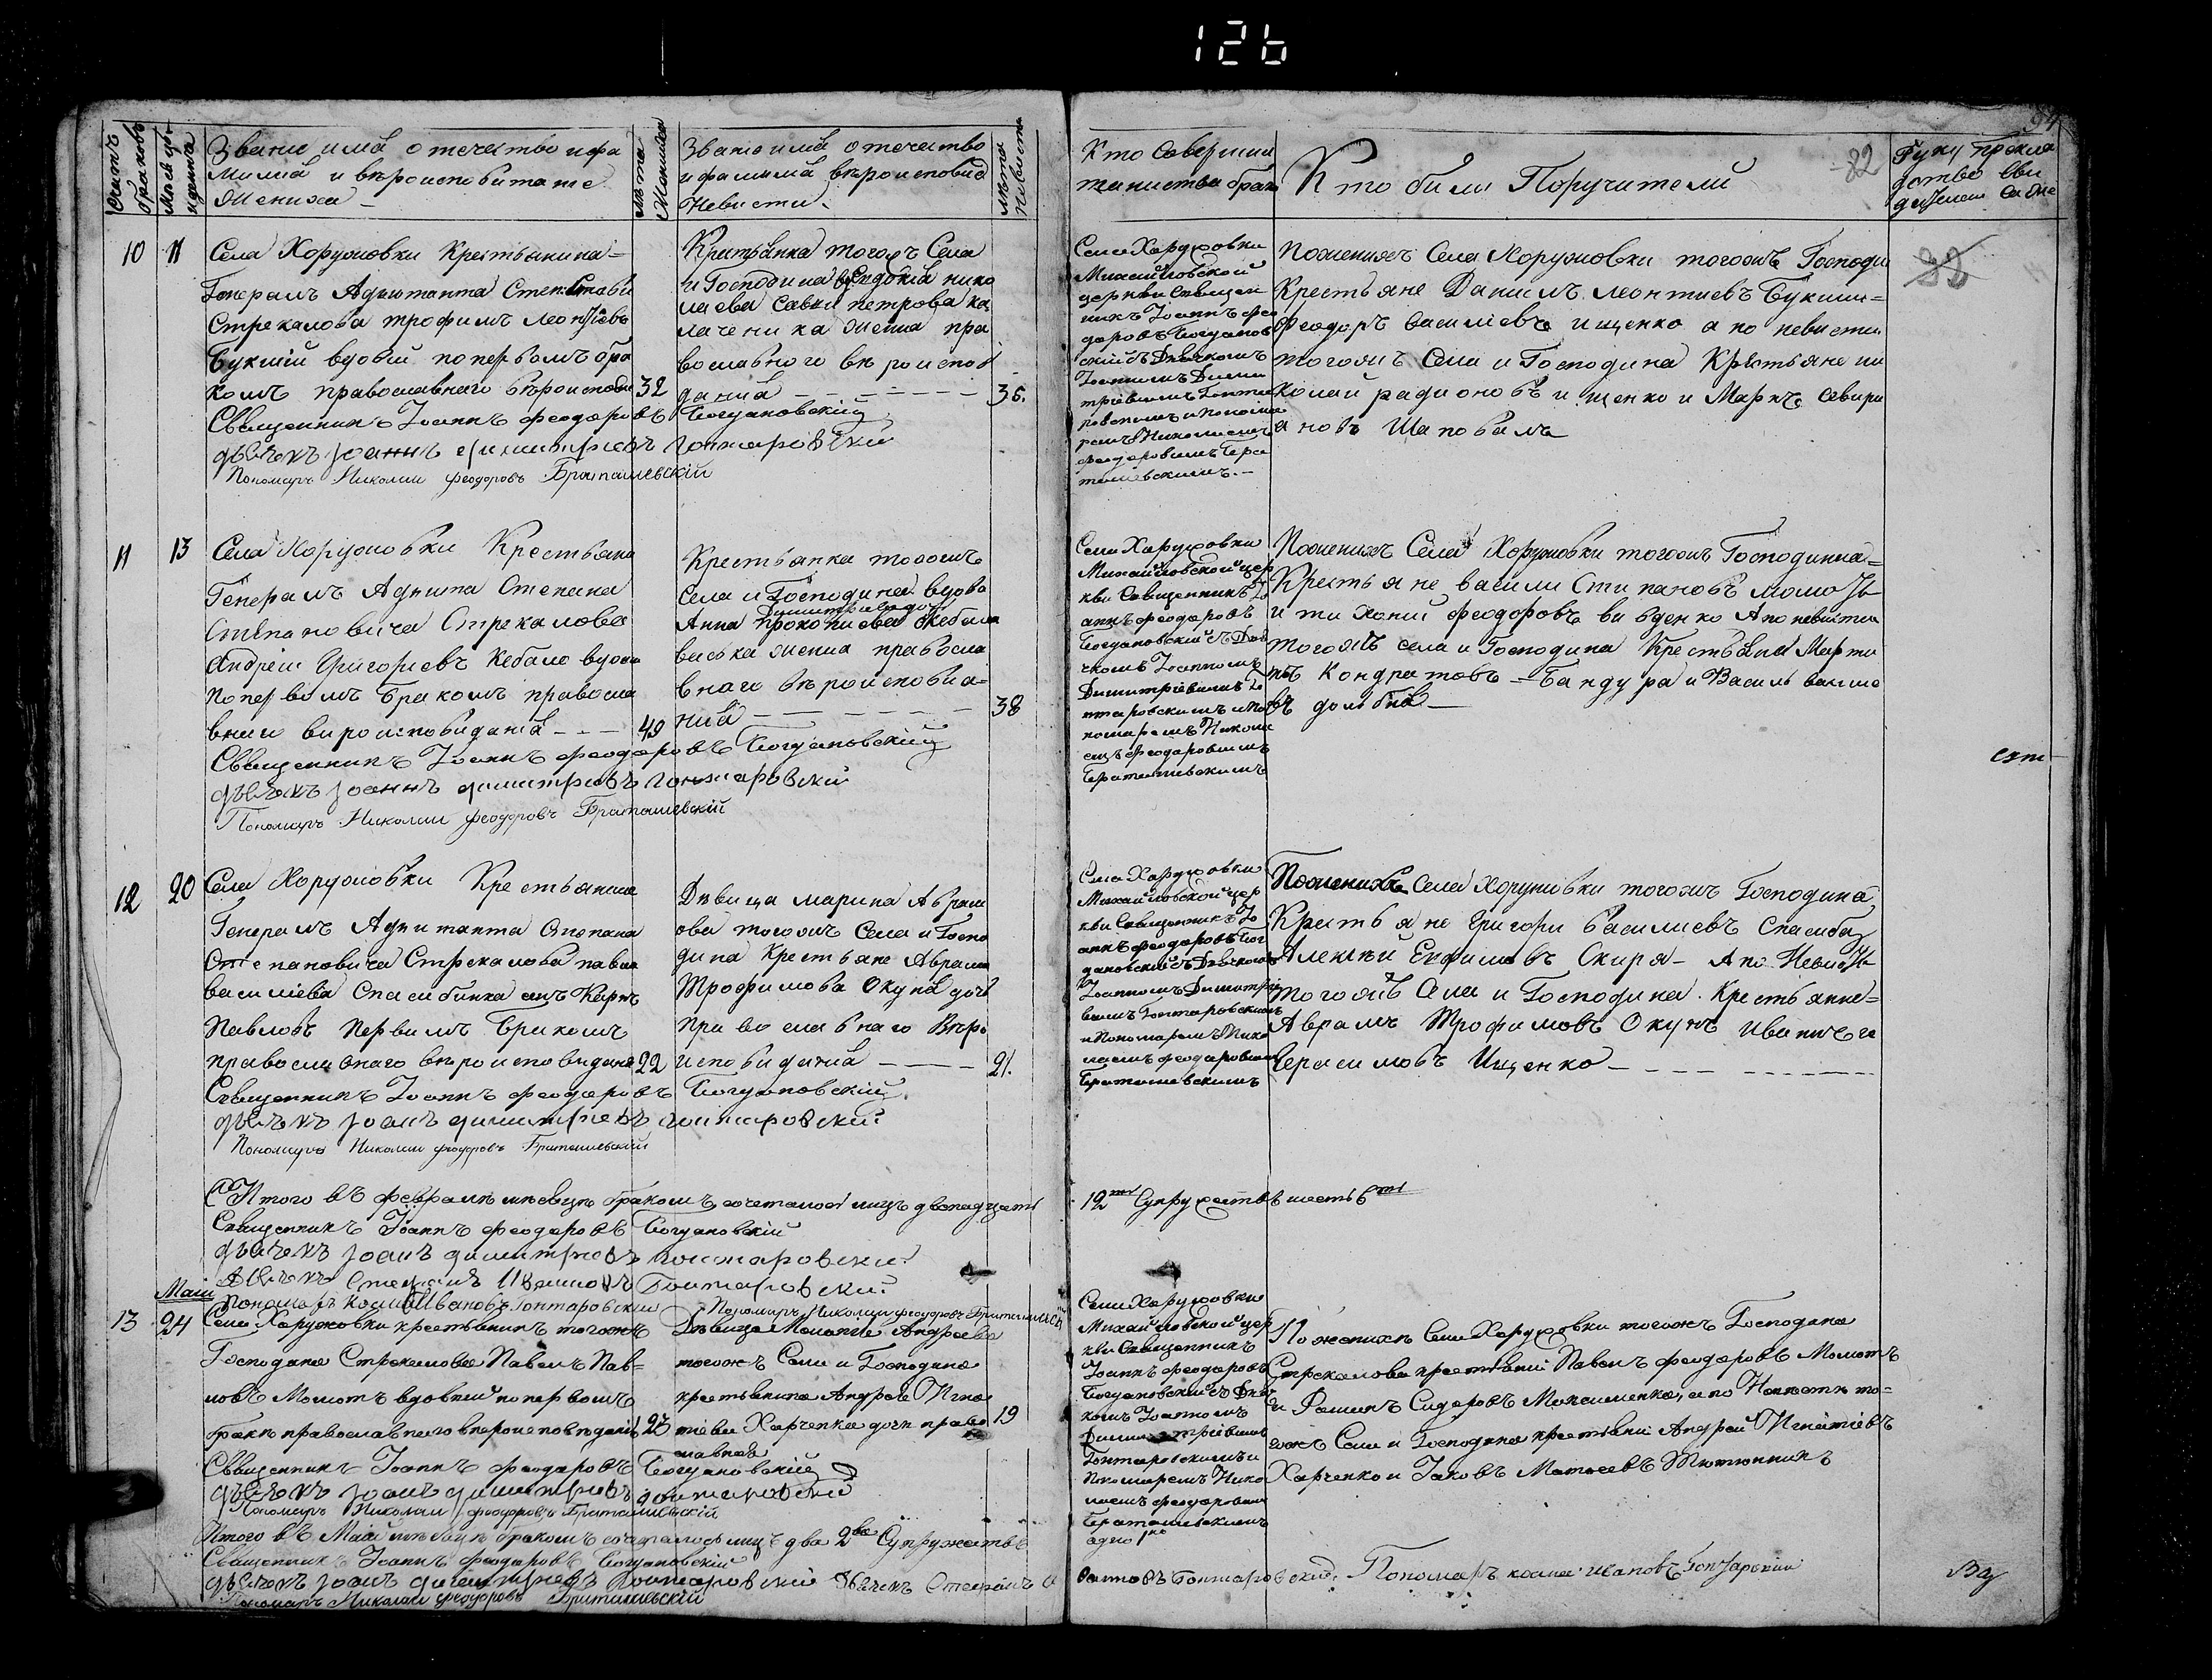 126
94
Счетъ браковъ
Мѣсяцъ
Званіе имя отечество и фа
милія и вѣроисповѣданіе
Жениха
Лѣта Жениха
Званіе имя отечество
и фамилія вѣроисповѣд
Невѣсти
Лѣта невѣсти
Кто Совершил
таинства брака
Кто были Поручители
82
10 11
Села Хоружовки Крестьянина
Генералъ Адьютанта
Стрекалова трофимъ леонтіевъ
Букшій вдовій по первомъ бра
комъ православнаго вѣроисповѣ
32
Священникъ Іоаннъ феодоровъ Богдановскій
дьячекъ Іоаннъ димитріевъ гонтаровскій
Пономаръ Николай феодоровъ Браташевскій
Крестьянка тогожъ Села
и Господина Евдокія нико
лаева савки петрова ка
лаченика жена пра
вославного вѣроиспов
данія
36.
Села Харужовки
Михайловской
церкви Священ
никъ Іоаннъ фео
доровъ Богданов
скій съ Дьячкомъ
Іоанномъ Дими
тріевымъ Гонта
ровскимъ и понома
ремъ Николаемъ
феодоровымъ Бра
ташевскимъ.
Поженихѣ Села Хоружовки тогожъ Господи
Крестьяне Данилъ леонтиевъ Букши
феодоръ василіевъ ищенко а по невисти
тогожъ Села и Господина Крестьяне ни
колай радионовъ ищенко и Маркъ севири
ановъ Шаповалъ
11 13
Села Хоружовки Крестьяни
Генералъ Адьюта Степана
Степановича Стрекалова
Андреи Григориевъ Кебало вдови
по первимъ Бракомъ правосла
внаго вироисповиданія
49
Священникъ Іоаннъ феодоровъ Богдановскій
дьячекъ Іоаннъ димитріевъ гонтаровскій
Пономаръ Николай феодоровъ Браташевскій
Крестьянка тогожъ
Села и Господина вдова
Анна прокопиева
виська жена правосла
внаго вѣроисповиа
нія
38
Села Харужовки
Михайловской цер
кви Священникъ Іо
аннъ феодоровъ
Богдановскій съ Дья
чкомъ Іоанномъ
Димитріевимъ Го
нтаровскимъ и по
номаремъ Никола
емъ феодоровимъ
Браташевскимъ
Поженихѣ Села Хоружовки тогожъ Господина
Крестьяне васили Стипановъ момотъ
и тихоній феодоровъ Аповевисти
тогожъ села и Господина Крестьяна Марти
нъ Кондратовъ Бандура и Василь василе
въ долбня
12 20
Села Хоружовки Крестьянина
Генералъ Адьютанта Степана
Степановича Стрекалова павла
василіева Спасибинка синъ Карпъ
Павловъ Первимъ Бракомъ
православнаго вѣроисповиданія
22
Священникъ Іоаннъ феодоровъ Богдановскій
дьячекъ Іоанъ димитріевъ гонтаровскій
Пономаръ Николай феодоровъ Браташевскій
Дѣвица марина Аврам
ова тогожъ Села и Госпо
дина Крестьяне Аврама
Трофимова Окуня дочь
православнаго Вѣро
исповиданія
21.
Села Харужовки
Михайловской цер
кви Священникъ Іо
аннъ феодоровъ Бог
дановскій съ Дьячкомъ
Іоанномъ Димитріе
вымъ Гонтаровскимъ
и Пономаремъ Нико
лаемъ феодоровымъ
Браташевскимъ
Поженихѣ Села Хоружовки тогожъ Господина
Крестьяне Григори Василиевъ Спасиба
Алексѣй Ефимовъ Скиря Апо Невисти
тогожъ Села и Господина Крестьяне
Аврамъ Трофимовъ Окунь
Герасимовъ Ищенко
Итого въ февралѣ мѣсяцѣ бракомъ сочеталось лицъ двенадцать
12 ть Супружествъ шесть 6 ть
Священникъ Іоаннъ феодоровъ Богдановскій
дьячекъ Іоанъ димитріевъ гонтаровскій
дьячекъ Стефанъ Ивановъ Гонтаровскій
Пономаръ Косма Ивановъ Гонтаровскій
Пономаръ Николай феодоровъ Браташевскій
Маій
13 24
Села Харужовки крестьянинъ тогожъ
Господина Стрекалова Павелъ Пав
ловъ Момотъ вдовый по первомъ
бракѣ православнаго вѣроисповѣданія
23
Священникъ Іоаннъ феодоровъ Богдановскій
дьячекъ Іоанъ димитріевъ гонтаровскій
Пономаръ Николай феодоровъ Браташевскій
Дѣвица Меланія Андреева
тогожъ Села и Господина
крестьянина Андрея Игна
тіева Харченка дочь право
славная
19
Села Харужовки
Михайловской цер
кви Священникъ
Іоаннъ феодоровъ
Богдановскій съ Дьяч
комъ Іоанномъ
Димитріевымъ
Гонтаровскимъ и
Пономаремъ Нико
лаемъ феодоровым
Браташевскимъ
По женихѣ Села Харужовки тогожъ Господина
Стрекалова крестьяне Павелъ феодоровъ Момотъ
и Фомынъ Сидоровъ Моисиенко, а по Невѣстѣ то
гожъ Села и Господина крестьяне Андрей Игнатіевъ
Харченко и Іаковъ Матвеевъ Тютюнникъ
Итого въ Маій мѣсяцѣ бракомъ сочталось лицъ два 2 ва Супружествъ
одно 1 но
Священникъ Іоаннъ феодоровъ Богдановскій
дьячекъ Іоанъ димитріевъ гонтаровскій Дьячекъ Стефанъ Ивановъ Гонтаровскій Пономаръ косма ивановъ Гонтарскій
Пономаръ Николай феодоровъ Браташевскій